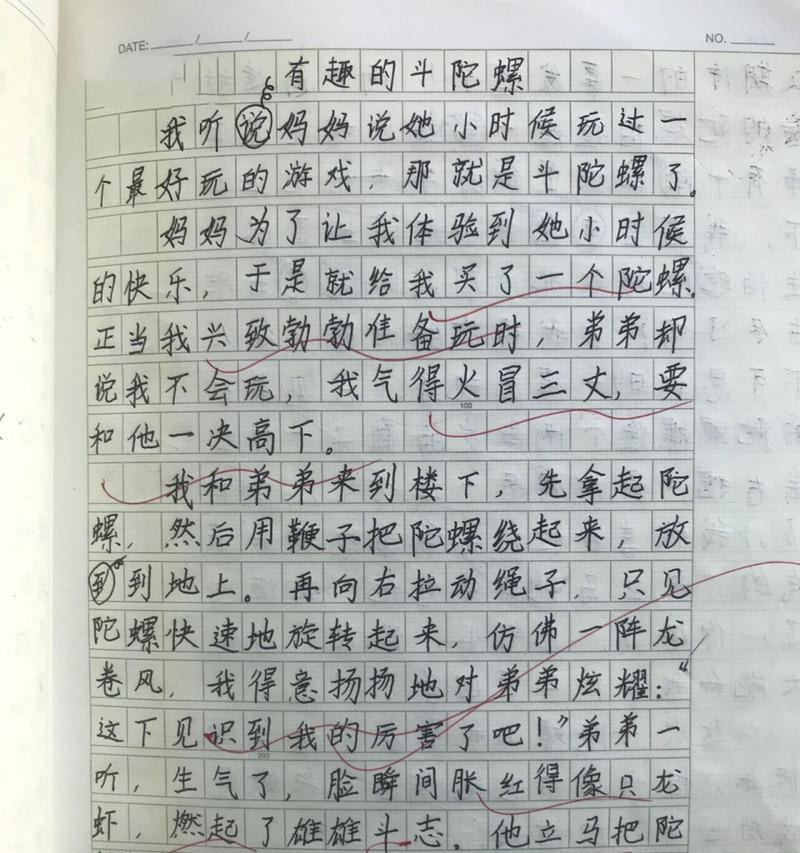 DATE: ___/___/___ NO. ____
有趣的斗陀螺
我听说妈妈说她小时候玩过一
个最好玩的游戏，那就是斗陀螺了。
妈妈为了让我体验到她小时候
的快乐，于是就给我买了一个陀螺。
正当我兴致勃勃准备玩时，弟弟却
说我不会玩，我气得火冒三丈，要
100
和他一决高下。
我和弟弟来到楼下，先拿起陀
螺，然后用鞭子把陀螺绕起来，放
到到地上。再向右拉动绳子，只见
陀螺快速地旋转起来，仿佛一阵龙
卷风，我得意扬扬地对弟弟炫耀：“
这下见识到我的厉害了吧！”弟弟一
200
听，生气了，脸瞬间胀红得像只龙
虾，燃起了雄雄斗志。他立马把陀